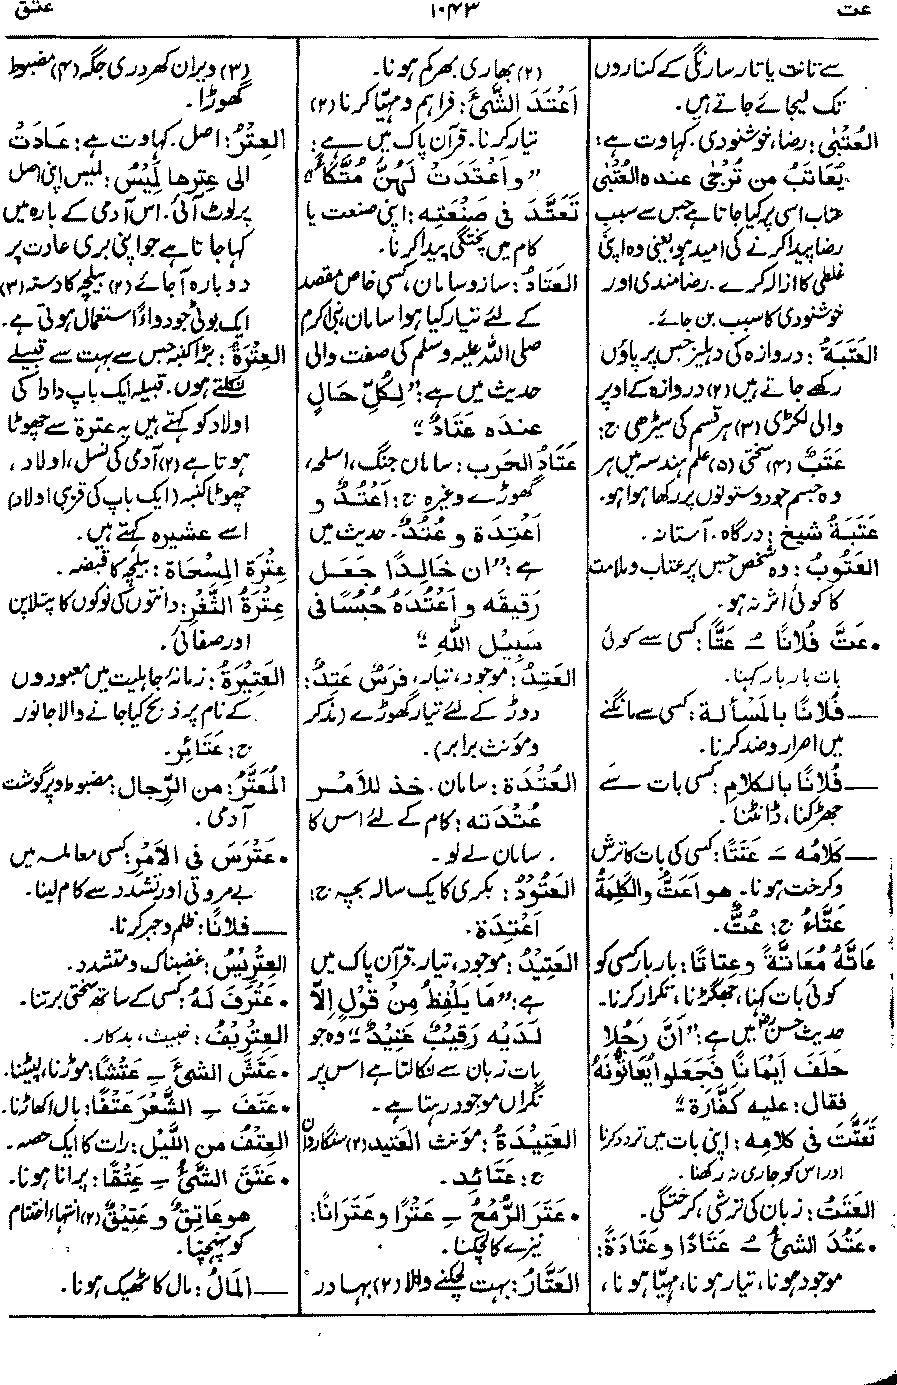 عت
۱۰۴۳
عتق
سے تانت یا تار سارنگی کے کناروں
تک لیجائے جاتے ہیں۔
العُتْبٰی: رضا، خوشنودی۔ کہاوت ہے:
یُعَاتَبُ من تُرْجٰی عندہ العُتْبٰی
عتاب اسی پر کیا جاتا ہے جس سے سبب
رضا پیدا کرنے کی امید ہو، یعنی وہ اپنی
غلطی کا ازالہ کرے۔ رضامندی اور
خوشنودی کا سبب بن جائے۔
العَتَبَةُ: دروازہ کی دہلیز جس پر پاؤں
رکھے جاتے ہیں (۲) دروازہ کے اوپر
والی لکڑی (۳) ہر قسم کی سیڑھی ج:
عَتَبٌ (۴) سختی (۵) علم ہندسہ میں ہر
وہ جسم جو دو ستونوں پر رکھا ہوا ہو۔
عَتَبَةُ شیخ: درگاہ۔ آستانہ۔
العَتُوبُ: وہ شخص جس پر عتاب و ملامت
کا کوئی اثر نہ ہو۔
• عَتَّ فُلَانًا ــُـ عَتًّا: کسی سے کوئی
بات بار بار کہنا۔
— فلانًا بالمَسألة: کسی سے مانگنے
میں اصرار و ضد کرنا۔
— فُلانًا بالکلامِ: کسی بات سے
جھڑکنا، ڈانٹنا۔
— کلامُه ــَـ عَتَتًا: کسی کی بات کا ترش
و کرخت ہونا۔ ھو اَعَتُّ والکَلِمَةُ
عَتَّاءُ ج: عُتٌّ۔
عَاتَّهُ مُعَاتَّةً وعِتاتًا: بار بار کسی کو
کوئی بات کہنا، جھگڑنا، تکرار کرنا۔
حدیث حسنؓ میں ہے: "اَنَّ رَجُلا
حَلَفَ اَیْمَانًا فَجَعَلوا یُعَاتُّونَهُ
فقال: علیه کَفَّارَة"
تَعَتَّتَ فی کلامِه: اپنی بات میں تردد کرنا
اور اس کو جاری نہ رکھنا۔
العَتَتُ: زبان کی ترشی، کرختگی۔
• عَتُدَ الشیُٔ ــُـ عَتَادًا وعَتَادَةً:
موجود ہونا، تیار ہونا، مہیا ہونا،
(۲) بھاری بھرکم ہونا۔
اَعْتَدَ الشَّیْءَ: فراہم و مہیا کرنا (۲)
تیار کرنا۔ قرآن پاک میں ہے:
"واَعْتَدَتْ لَهُنَّ مُتَّكَأً"
تَعَتَّدَ فی صَنْعَتِه: اپنی صنعت یا
کام میں پختگی پیدا کرنا۔
العَتَادُ: ساز و سامان، کسی خاص مقصد
کے لئے تیار کیا ہوا سامان، نبی اکرم
صلی اللہ علیہ وسلم کی صفت والی
حدیث میں ہے: "لِکُلِّ حَالٍ
عندہ عَتَادٌ"
عَتَادُ الحَرب: سامان جنگ، اسلحہ،
گھوڑے وغیرہ ج: اَعْتُدٌ و
اَعْتِدَة و عُتُدٌ۔ حدیث میں
ہے: "ان خَالِدًا جَعَلَ
رَقِیقَه و اَعْتُدَہُ حُبُسًا فی
سَبِیْلِ اللهِ"
العَتِدُ: موجود، تیار، فرسٌ عَتِدٌ:
دوڑ کے لئے تیار گھوڑے (مذکر
و مؤنث برابر)۔
العُتْدَة: سامان۔ خذ للأمرِ
عُتْدَتَه: کام کے لئے اس کا
سامان لے لو۔
العَتُودُ: بکری کا یک سالہ بچہ ج:
اَعْتِدَة۔
العَتِیْدُ: موجود، تیار۔ قرآن پاک میں
ہے: "مَا یَلْفِظُ مِنْ قَوْلٍ اِلَّا
لَدَیْهِ رَقِیْبٌ عَتِیْدٌ" وہ جو
بات زبان سے نکالتا ہے اس پر
نگراں موجود رہتا ہے۔
العَتِیْدَةُ: مؤنث العَتِید (۲) سنگار دان
ج: عَتَائِد۔
• عَتَرَ الرُّمْحُ ــِـ عَتْرًا وعَتَرَانًا:
نیزے کا لچکنا۔
العَتَّارُ: بہت لچکنے والا (۲) بہادر
(۳) ویران کھردری جگہ (۴) مضبوط
گھوڑا۔
العِتْرُ: اصل۔ کہاوت ہے: عَادَتْ
الی عِترِها لَمِیْسُ: لمیس اپنی اصل
پر لوٹ آئی۔ اس آدمی کے بارہ میں
کہا جاتا ہے جو اپنی بری عادت پر
دوبارہ آجائے (۲) بیلچہ کا دستہ (۳)
ایک بوٹی جو دواءً استعمال ہوتی ہے۔
العِتْرَةُ: بڑا کنبہ جس سے بہت سے قبیلے
نکلتے ہوں۔ قبیلہ ایک باپ دادا کی
اولاد کو کہتے ہیں یہ عترة سے چھوٹا
ہوتا ہے (۲) آدمی کی نسل، اولاد،
چھوٹا کنبہ (ایک باپ کی قریبی اولاد)
اسے عشیرہ کہتے ہیں۔
عِتْرَة المِسْحَاة: بیلچہ کا قبضہ۔
عِتْرَةُ الثَّغْرِ: دانتوں کی نوکوں کا پتلاپن
اور صفائی۔
العَتِیْرَةُ: زمانۂ جاہلیت میں معبودوں
کے نام پر ذبح کیا جانے والا جانور
ج: عَتَائِر۔
المُعَتَّرُ: من الرِّجال: مضبوط و پرگوشت
آدمی۔
• عَتْرَسَ فی الاَمْرِ: کسی معاملہ میں
بے مروتی اور تشدد سے کام لینا۔
— فلانًا: ظلم و جبر کرنا۔
العِتْرِیْسُ: غضبناک و متشدد۔
• عَتْرَفَ لَهُ: کسی کے ساتھ سختی برتنا۔
العِتْرِیْفُ: خبیث، بدکار۔
• عَتَشَ الشیَٔ ــِـ عَتْشًا: موڑنا، لپیٹنا۔
• عَتَفَ ــِـ الشَّعْرَ عَتْفًا: بال اکھاڑنا۔
العِتْفُ من اللَّیْل: رات کا ایک حصہ۔
• عَتَقَ الشَّیُٔ ــِـ عِتْقًا: پرانا ہونا۔
ھو عَاتِقٌ و عَتِیْقٌ (۲) انتہاء اختتام
کو پہنچنا۔
— المَالُ: مال کا ٹھیک ہونا۔